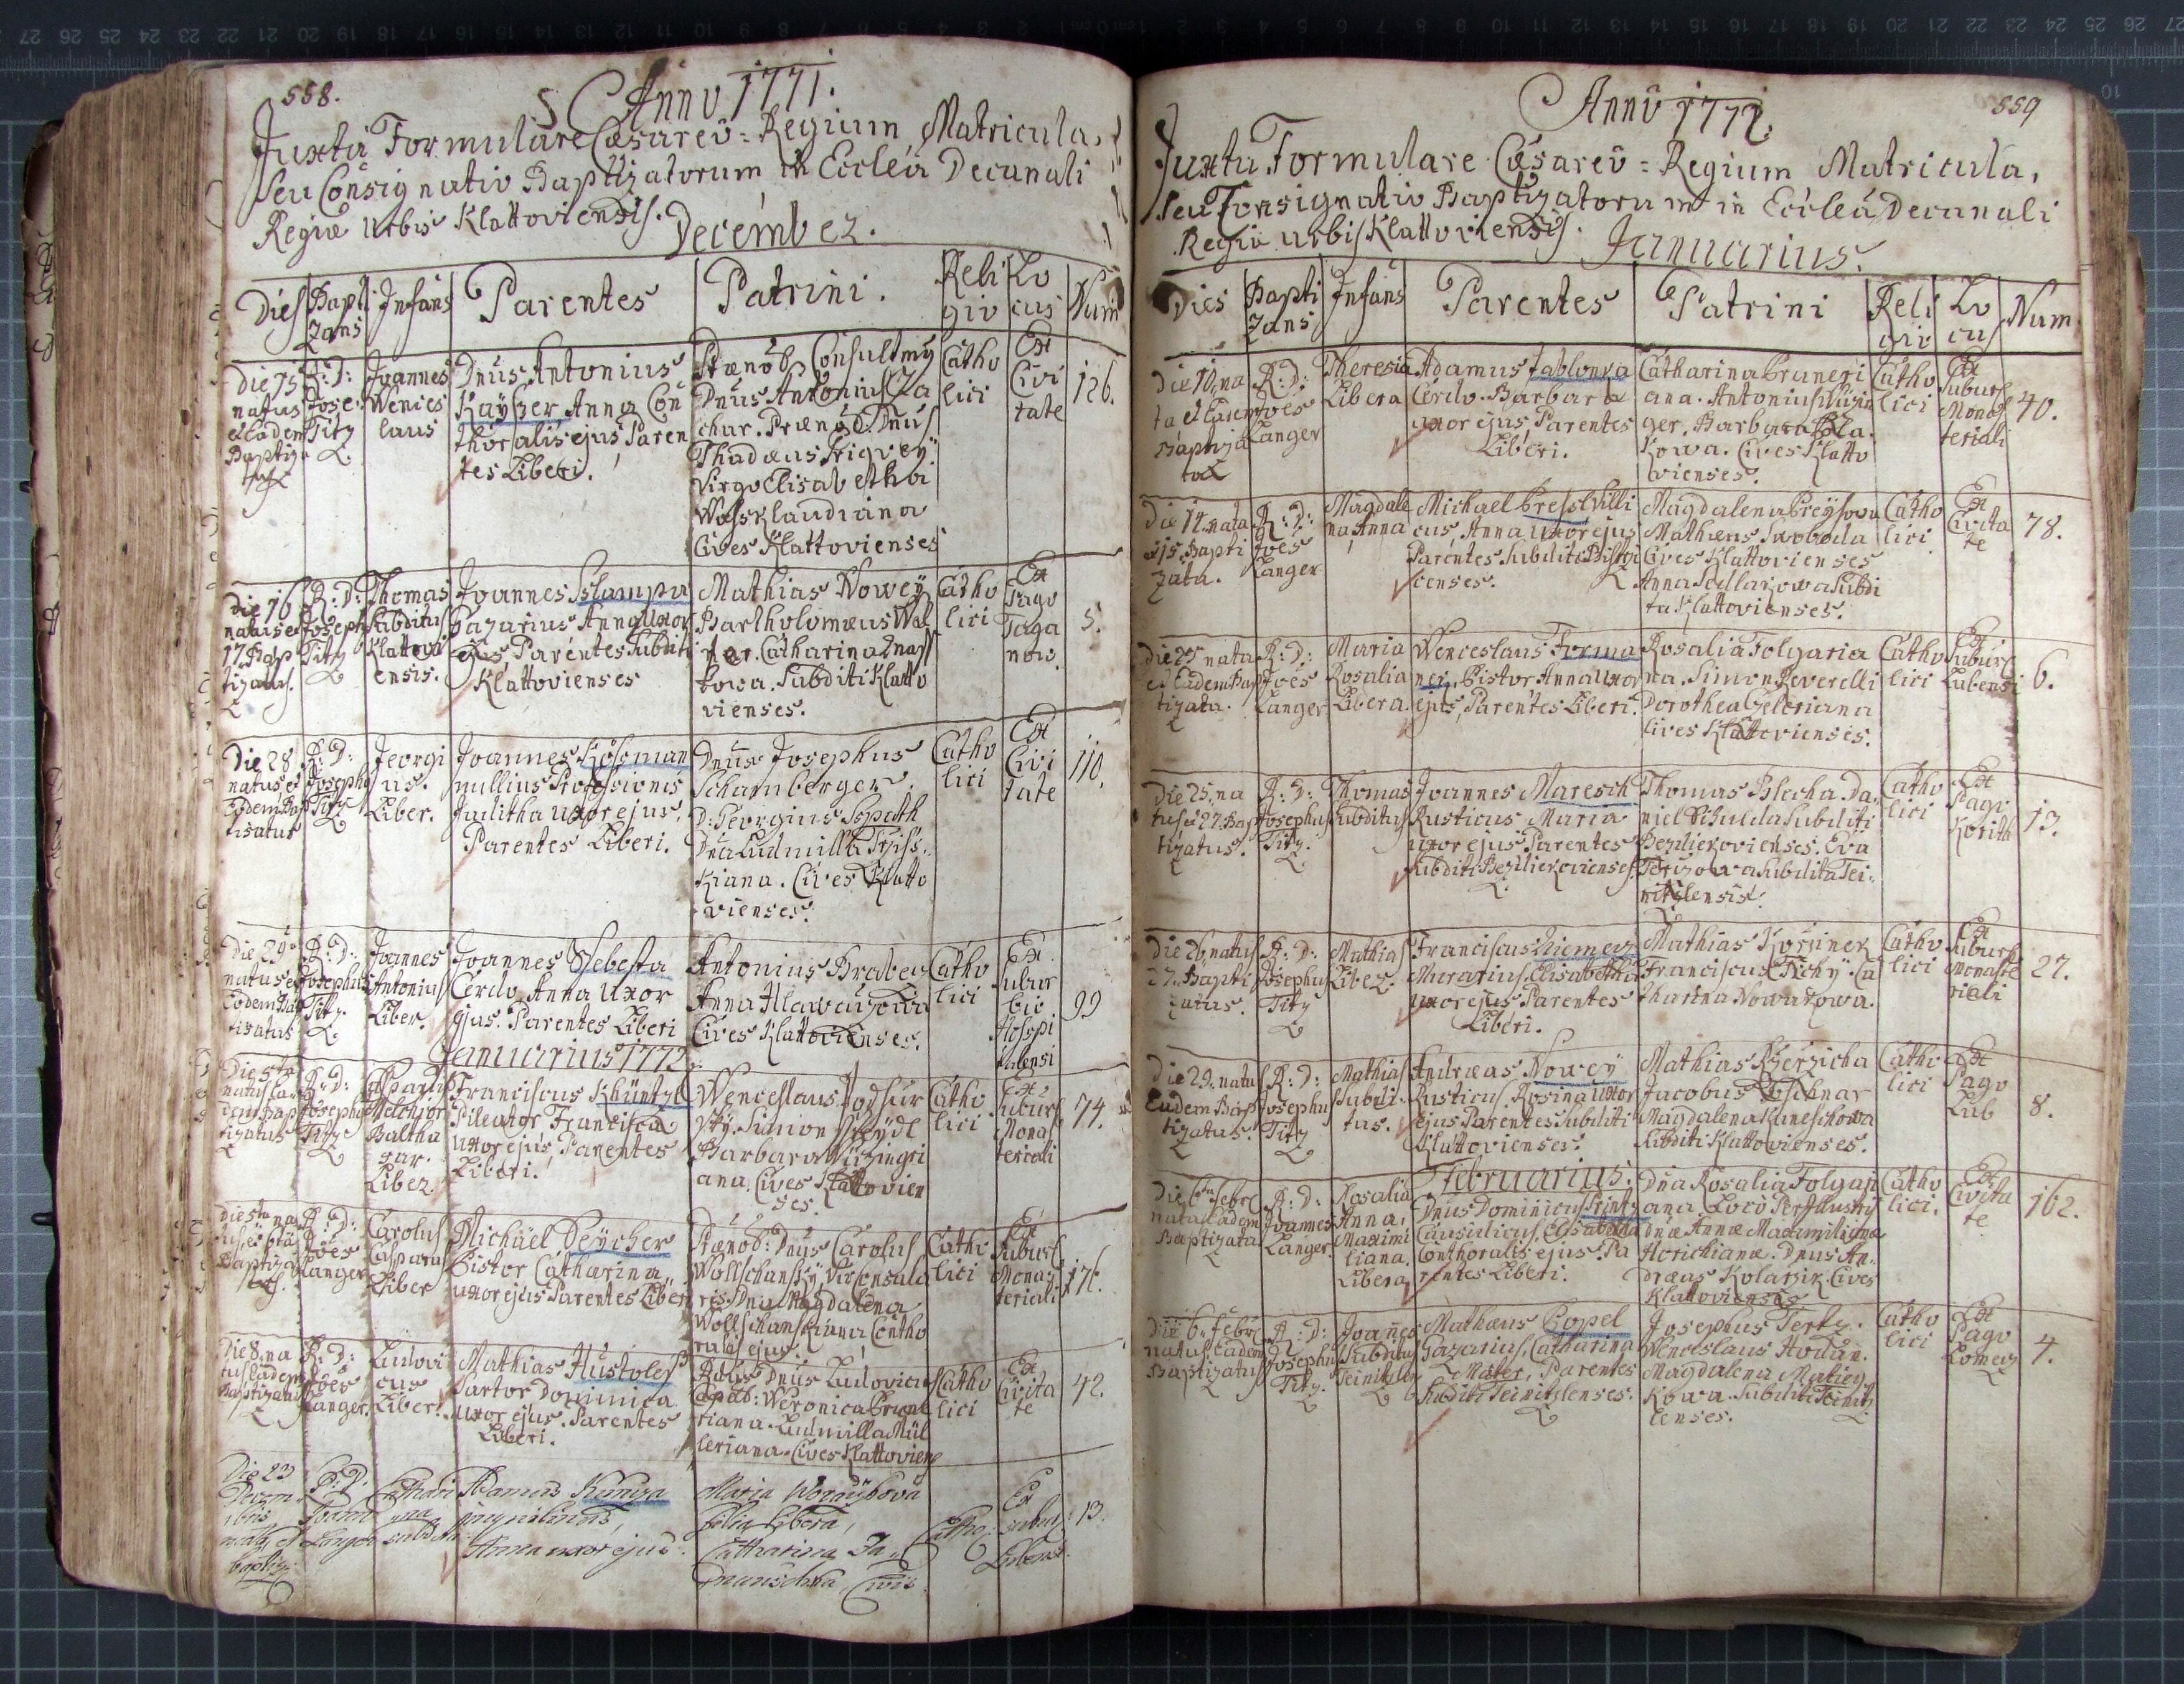 558.
Anno 1771.
Juxta Formulare Cæsareo=Regium Matricula,
seu Consignatio Baptizatorum in Ecclea Decanali
Regiæ Urbis Klattoviensis.
December.
Dies
Bapti
zans
Infans
Parentes
Patrini.
Reli
gio
Lo
cus
Num
Die 15
natus
et eadem
Baptiza
tus
R: D:
Jose:
Titz
Joannes
Wences
laus
Dnus Antonius
Kayser Anna Con
thoralis ejus, Paren
tes Liberi.
Dnus Antonius Za
char. Prænob. Dnus
Virgo Elisabetha
Cives Klattovienses
Catho
lici
Ex
Civi
tate
126.
Die 16
natus et
17 Bap
tizatus.
R: D:
Joseph
Titz
Thomas
Subditus
Klattovi
ensis.
Joannes Sslampa
Gazarius Anna Uxor
ejus, Parentes Subditi
Klattovienses
Mathias Nowey
Bartholomæus
Catharina
towa. Subditi Klatto
vienses.
Catho
lici
Ex
Pago
Taja
now.
5.
Die 28
natus, et
Eodem Bap
tisatus
R: D:
Josephus
Titz
Georgi
us.
Liber.
Joannes Kossman
nullius Professionis
Juditha uxor ejus,
Parentes Liberi.
Dnus Josephus
Schamberger.
D: Georgius Sspath
Dna Ludmilla
kiana. Cives Klatto
vienses.
Catho
lici
Ex
Civi
tate
110.
Die 29
natus et
Eodem Bap
tisatus
R: D:
Josephus
Titz
Joannes
Antonius
Liber.
Joannes Ssebesta
Cerdo, Anna Uxor
ejus. Parentes Liberi
Antonius Brabec
Anna Hlawaczowa
Cives Klattovienses.
Catho
lici
Ex
Subur
bio
Hosspi
talensi
99
Januarius 1772.
Die 5ta
natus ea
dem Bap
tizatus
R: D:
Josephus
Titz
Caspar
Melchior
Baltha
zar.
Liber.
Franciscus Khüntzl
Pileator Francisca
uxor ejus, Parentes
Liberi.
Wenceslaus Podhur
sky. Simon
Barbara
ana. Cives Klattovien
ses.
Catho
lici
Ex
Suburb
Monas
teriali
74.
Die 5ta na
tus, et 6ta
Baptiza
tus.
R: D:
Joes
Langer
Carolus
Casparus
Liber
Michael Deycher
Pistor Catharina
uxor ejus Parentes Liberi
Prænob: Dnus Carolus
Wollschansky
Dna Magdalena
Wollschanskiana Contho
ralis ejus.
Catho
lici
Ex
Suburb
Monas
teriali
176.
Die 8. na
tus eadem
Baptizatus
R: D:
Joes
Langer.
Ludovi
cus
Liber.
Mathias Hustoles
Sartor Dominica
uxor ejus. Parentes
Liberi.
Rdus Dnus Ludovicus
Weronica
riana. Ludmilla Mül
leriana. Cives Klattoviens
Catho
lici
Ex
Civita
te
42.
Die 23
Decem
bris
nata et
baptiz.
R: D:
Joann
Langer
Cathari
na
subdita
Adamus Kunza
inquilinus,
Anna uxor ejus.
Maria
filia libera,
Catharina Ja
Cives
Catho:
Ex
suburb:
Lubens:
13.
559
Anno 1772.
Juxta Formulare Cæsareo=Regium Matricula,
seu Consignatio Baptizatorum in Ecclea Decanali
Regiæ urbis Klattoviensis.
Januarius.
Dies
Bapti
zans
Infans
Parentes
Patrini
Reli
gio
Lo
cus
Num.
Die 10. na
ta et eadem
Baptiza
ta
R: D:
Joes
Langer
Theresia
Libera
Adamus Jablonka
Cerdo. Barbara
uxor ejus, Parentes
Liberi.
Catharina Pruneri
ana. Antonius
ger. Barbara
kowa. Cives Klatto
vienses.
Catho
lici
Ex
Suburb
Monas
teriali
40.
Die 14. nata
15 Bapti
zata.
R: D:
Joes
Langer
Magdale
na Anna
Michael Press Villi
cus, Anna uxor ejus
Parentes Subditi Bistrzi
censes.
Magdalena Preysowa
Mathæus Swoboda
Cives Klattovienses
Anna Sedlakowa Subdi
ta Klattovienses.
Catho
lici
Ex
Civita
te
78.
Die 25 nata
et Eadem Bap
tizata.
R: D:
Joes
Langer
Maria
Rosalia
Libera.
Wenceslaus Forma
nek, Pistor Anna Uxor
ejus, Parentes Liberi.
Rosalia Folgaria
na. Simon Reverelli
Dorothea Gelleriana
Cives Klattovienses.
Catho
lici
Ex
Suburb
Lubensi
6.
Die 25. na
tus 27. Bap
tizatus.
R: D:
Josephus
Titz.
Thomas
Subditus
Joannes Maresch
Rusticus Maria
uxor ejus Parentes
Subditi Bezdiekovienses.
Thomas Blecha. Da
niel Schulda Subditi
Bezdiekovienses. Eva
Subdita Tei
nitzlensis.
Catho
lici
Ex
Pago
Korith
13.
Die 26. natus
27. Bapti
zatus.
R: D:
Josephus
Titz
Mathias
Liber.
Franciscus Niemecz
Murarius, Elisabetha
uxor ejus Parentes
Liberi.
Mathias Korzinek
Franciscus Tichy. Ca
tharina Nowakowa.
Catho
lici
Ex
Suburb
Monaste
riali
27.
Die 29. natus
Eadem Bap
tizatus.
R: D:
Josephus
Titz
Mathias
Subdi
tus.
Andreas Nowey
Rusticus, Rosina uxor
ejus Parentes Subditi
Klattovienses.
Mathias
Jacobus
Magdalena Kuneschowa
Subditi Klattovienses.
Catho
lici
Ex
Pago
Lub
8.
Februarius.
Die 6ta Febr
nata Eadem
Baptizata
R: D:
Joannes
Langer
Rosalia
Anna,
Maximi
liana.
Libera
Dnus Dominicus Printz
Causidicus, Elisabetha
Conthoralis ejus. Pa
rentes Liberi.
Dna Rosalia Folgari
ana. Loco Perillustris
dnæ Annæ Maximilianæ
Horichianæ. Dnus An
dræas Kolarzik. Cives
Klattovienses
Catho
lici.
Ex
Civita
te
162.
Die 6. Febr
natus eadem
Baptizatus
R: D:
Josephus
Titz.
Joanes
Subditus
Teinitzlen
Mathæus Popel
Gazarius, Catharina
Mater, Parentes
Subditi Teinitzlenses.
Josephus Tertz.
Wenceslaus Hodan.
Magdalena Matiey
kowa. Subditi Teinitz
lenses.
Catho
lici
Ex
Pago
Lomecz
4.